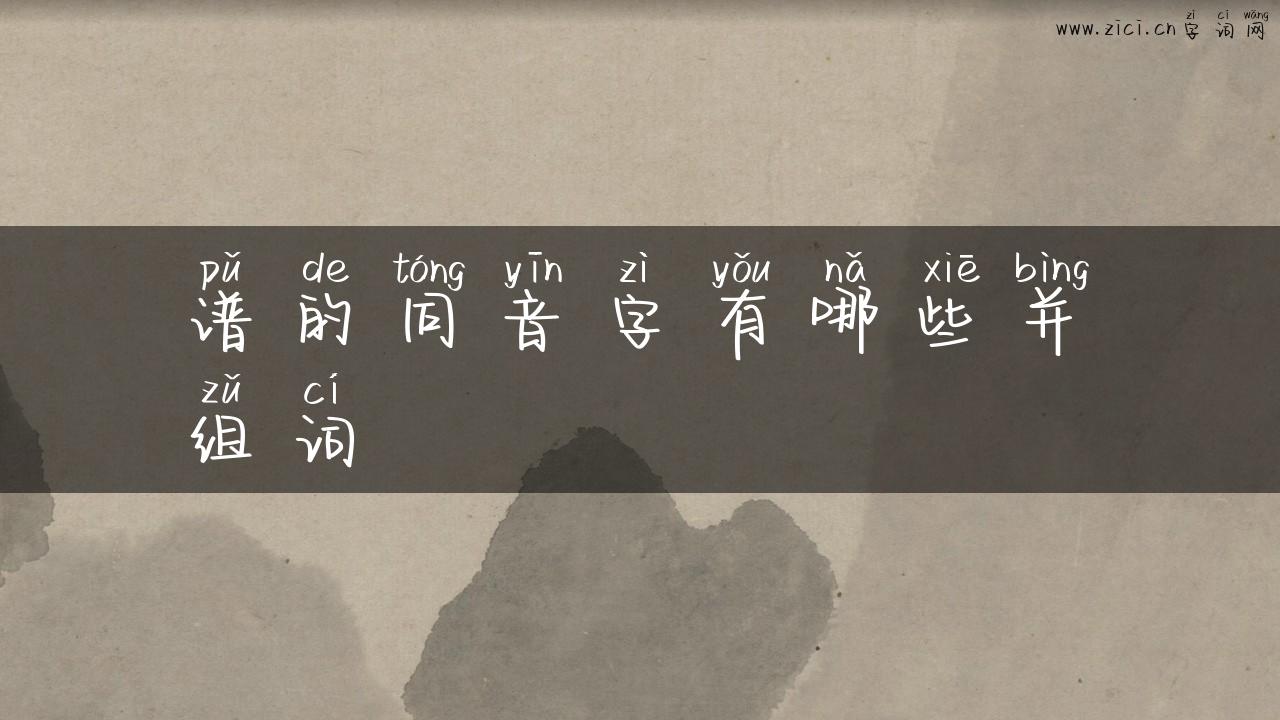 zì cí wǎng
www.zici.cn 字词网
pǔ de tóng yīn zì yǒu nǎ xiē bìng
谱的同音字有哪些并
zǔ cí
组词